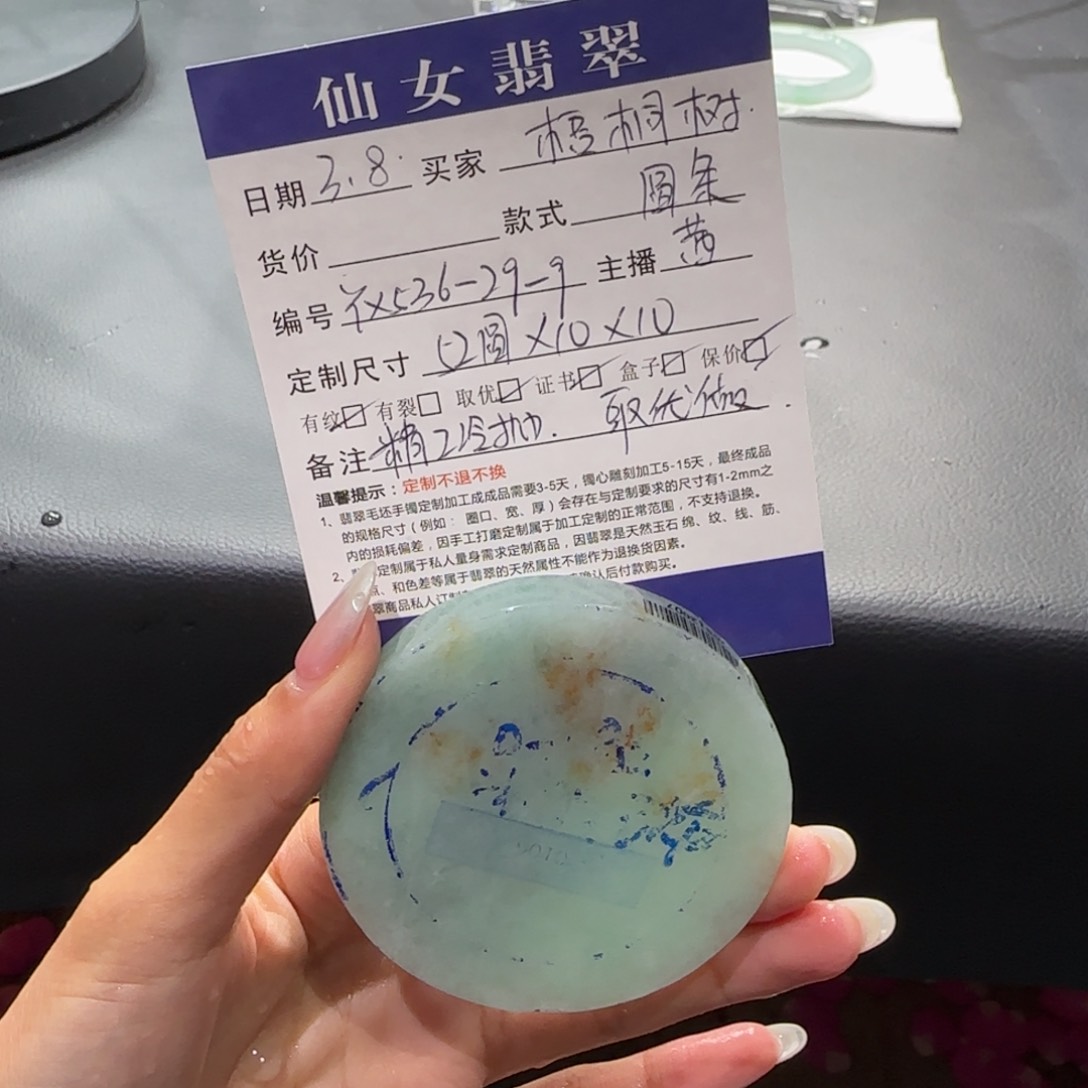 仙女翡翠
日期 3.8. 买家 梧桐树.
货价 款式 圆条
编号 536-29-9 主播 茜
定制尺寸 52圆×10×10
有纹 有裂 取优 证书 盒子 保价
备注 精工冷抛. 取优做.
温馨提示：定制不退不换
1、翡翠毛坯手镯定制加工成成品需要3-5天，镯心雕刻加工5-15天，最终成品
的规格尺寸（例如： 圈口、宽、厚）会存在与定制要求的尺寸有1-2mm之
内的损耗偏差，因手工打磨定制属于加工定制的正常范围，不支持退换。
2、定制属于私人量身需求定制商品，因翡翠是天然玉石 绵、纹、线、筋、
点、和色差等属于翡翠的天然属性不能作为退换货因素。
翠商品私人订制 确认后付款购买。